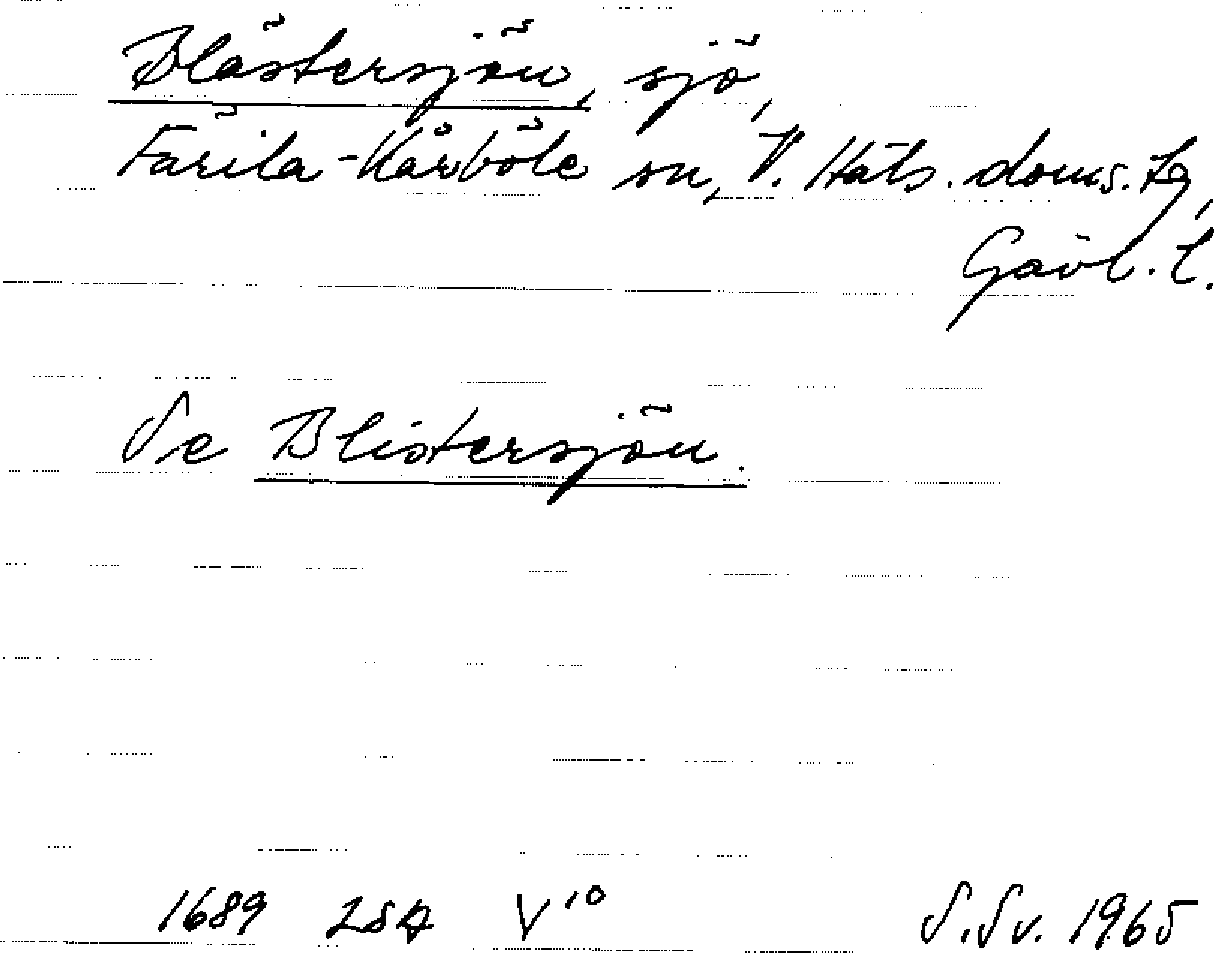 Blästersjön, sjö,
Färila-Kårböle sn, V. Häls. doms. tg,
Gävl. l.
Se Blistersjön.
1689 LSA V¹⁰
S. Sv. 1965